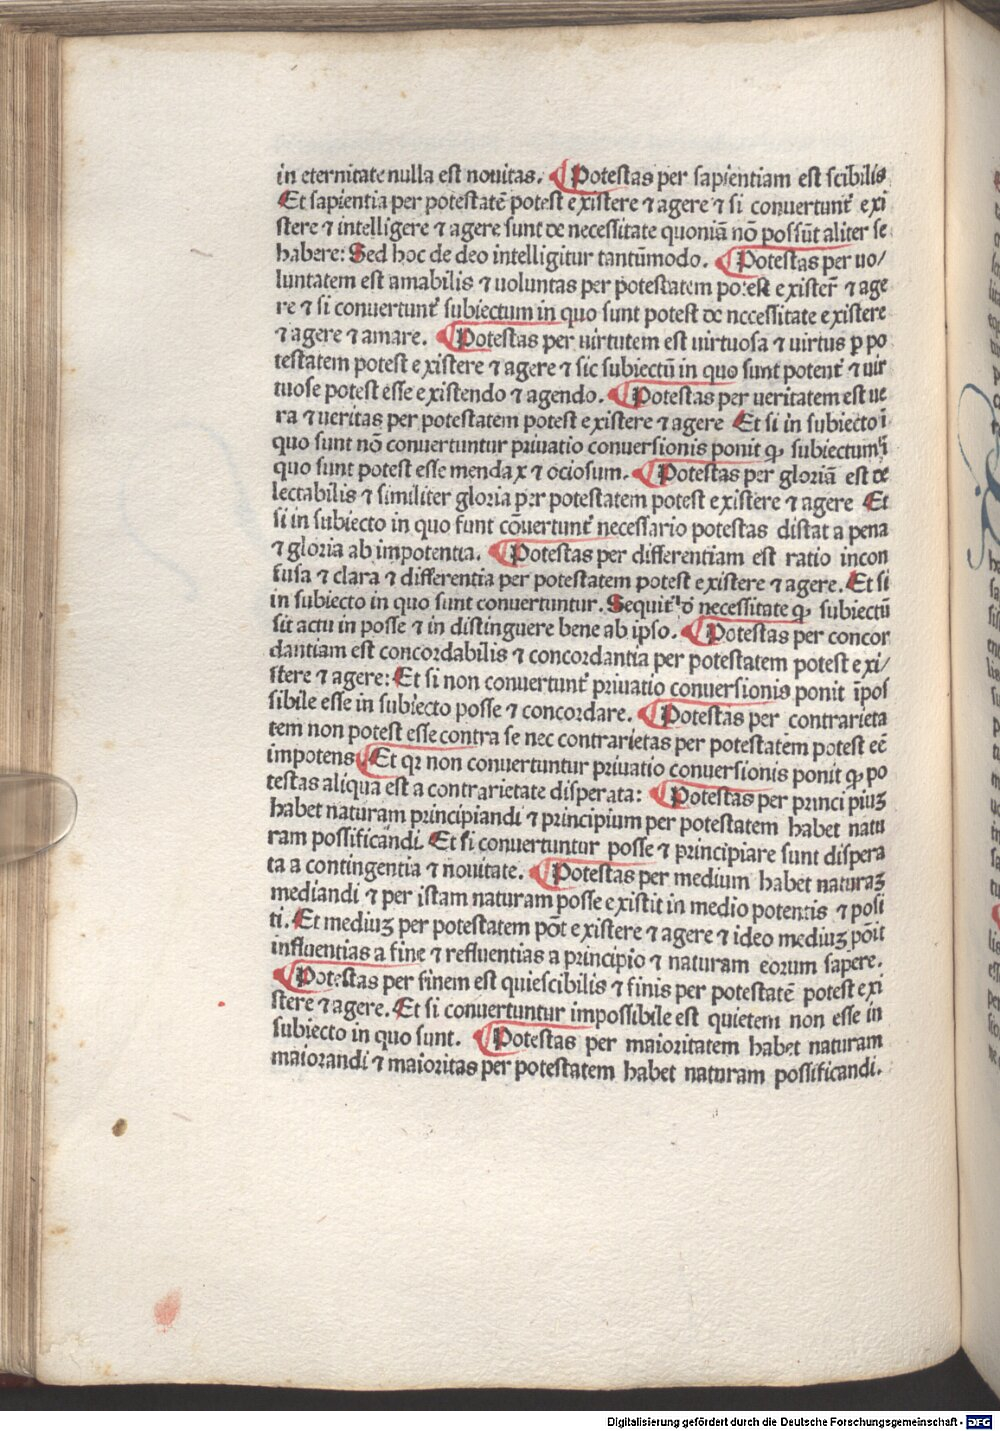 in eternitate nulla est nouitas. Potestas per sapientiam est scibilis
Et sapientia per potestatē potest existere ⁊ agere ⁊ si conuertunt᷑ exi
stere ⁊ intelligere ⁊ agere sunt de necessitate quoniā nō possūt aliter se
habere: Sed hoc de deo intelligitur tantūmodo. Potestas per uo/
luntatem est amabilis ⁊ uoluntas per potestatem potest exister̄ ⁊ age
re ⁊ si conuertunt᷑ subiectum in quo sunt potest de necessitate existere
⁊ agere ⁊ amare. Potestas per uirtutem est uirtuosa ⁊ uirtus ꝑ po
testatem potest existere ⁊ agere ⁊ sic subiectū in quo sunt potent᷑ ⁊ uir
tuose potest esse existendo ⁊ agendo. Potestas per ueritatem est ue
ra ⁊ ueritas per potestatem potest existere ⁊ agere Et si in subiecto ī
quo sunt nō conuertuntur priuatio conuersionis ponit ꝙ subiectum ī
quo sunt potest esse mendax ⁊ ociosum. Potestas per gloriā est de
lectabilis ⁊ similiter gloria per potestatem potest existere ⁊ agere Et
si in subiecto in quo sunt cōuertunt᷑ necessario potestas distat a pena
⁊ gloria ab impotentia. Potestas per differentiam est ratio incon
fusa ⁊ clara ⁊ differentia per potestatem potest existere ⁊ agere. Et si
in subiecto in quo sunt conuertuntur. Sequit᷑ necessitate ꝙ subiectū
sit actu in posse ⁊ in distinguere bene ab ipso. Potestas per concor
dantiam est concordabilis ⁊ concordantia per potestatem potest exi/
stere ⁊ agere: Et si non conuertunt᷑ priuatio conuersionis ponit īpos
sibile esse in subiecto posse ⁊ concordare. Potestas per contrarieta
tem non potest esse contra se nec contrarietas per potestatem potest eē
impotens Et qꝛ non conuertuntur priuatio conuersionis ponit ꝙ po
testas aliqua est a contrarietate disperata: Potestas per principiuꝫ
habet naturam principiandi ⁊ principium per potestatem habet natu
ram possificandi. Et si conuertuntur posse ⁊ principiare sunt dispera
ta a contingentia ⁊ nouitate. Potestas per medium habet naturaꝫ
mediandi ⁊ per istam naturam posse existit in medio potentis ⁊ possi
ti. Et mediuꝫ per potestatem pōt existere ⁊ agere ⁊ ideo mediuꝫ pōit
influentias a fine ⁊ refluentias a principio ⁊ naturam eorum sapere.
Potestas per finem est quiescibilis ⁊ finis per potestatē potest exi
stere ⁊ agere. Et si conuertuntur impossibile est quietem non esse in
subiecto in quo sunt. Potestas per maioritatem habet naturam
maiorandi ⁊ maioritas per potestatem habet naturam possificandi.
Digitalisierung gefördert durch die Deutsche Forschungsgemeinschaft - DFG